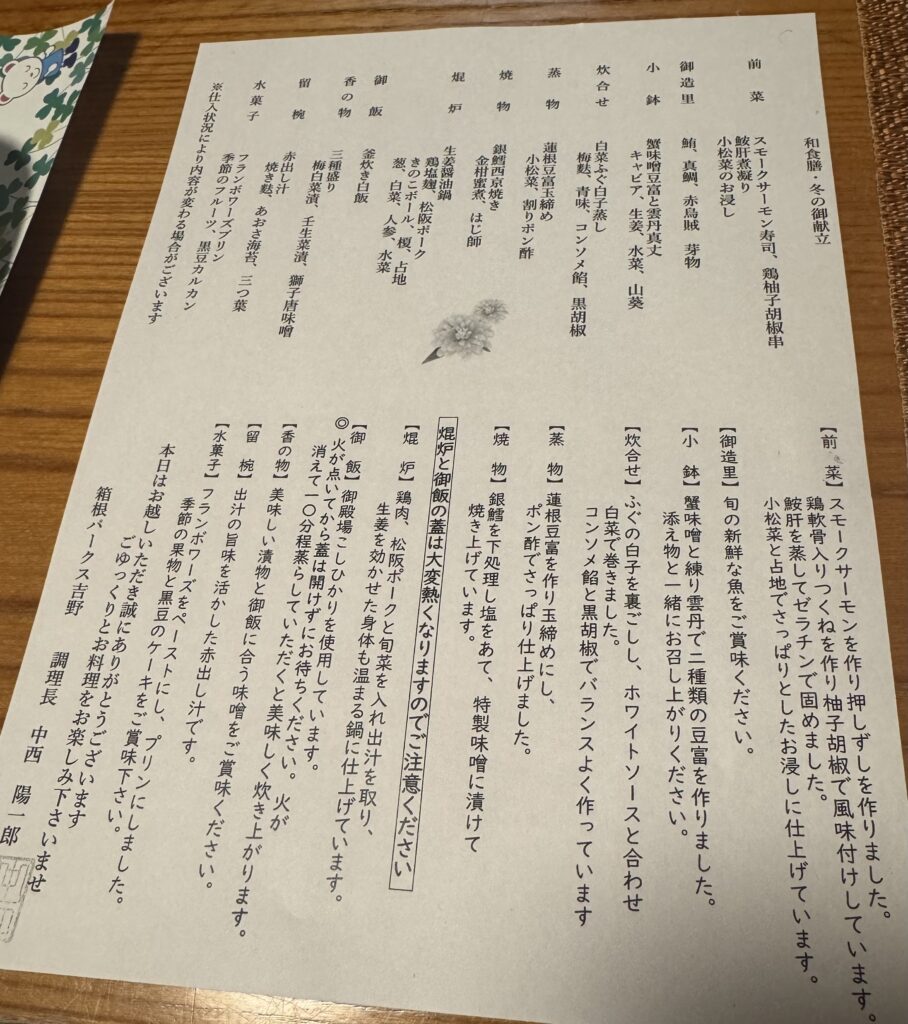 和食膳・冬の御献立
前菜　スモークサーモン寿司、鶏柚子胡椒串
鮟肝煮凝り
小松菜のお浸し
御造里　鮪、真鯛、赤烏賊　芽物
小鉢　蟹味噌豆富と雲丹真丈
キャビア、生姜、水菜、山葵
炊合せ　白菜ふぐ白子蒸し
梅麩、青味、コンソメ餡、黒胡椒
蒸物　蓮根豆富玉締め
小松菜、割りポン酢
焼物　銀鱈西京焼き
金柑蜜煮、はじ師
焜炉　生姜醤油鍋
鶏塩麹、松阪ポーク
きのこボール、榎、占地
葱、白菜、人参、水菜
御飯　釜炊き白飯
香の物　三種盛り
梅白菜漬、壬生菜漬、獅子唐味噌
留椀　赤出し汁
焼き麩、あおさ海苔、三つ葉
水菓子　フランボワーズプリン
季節のフルーツ、黒豆カルカン
※仕入状況により内容が変わる場合がございます
【前菜】スモークサーモンを作り押しずしを作りました。
鶏軟骨入りつくねを作り柚子胡椒で風味付けしています。
鮟肝を蒸してゼラチンで固めました。
小松菜と占地でさっぱりとしたお浸しに仕上げています。
【御造里】旬の新鮮な魚をご賞味ください。
【小鉢】蟹味噌と練り雲丹で二種類の豆富を作りました。
添え物と一緒にお召し上がりください。
【炊合せ】ふぐの白子を裏ごしし、ホワイトソースと合わせ
白菜で巻きました。
コンソメ餡と黒胡椒でバランスよく作っています
【蒸物】蓮根豆富を作り玉締めにし、
ポン酢でさっぱり仕上げました。
【焼物】銀鱈を下処理し塩をあて、特製味噌に漬けて
焼き上げています。
焜炉と御飯の蓋は大変熱くなりますのでご注意ください
【焜炉】鶏肉、松阪ポークと旬菜を入れ出汁を取り、
生姜を効かせた身体も温まる鍋に仕上げています。
【御飯】御殿場こしひかりを使用しています。
◎火が点いてから蓋は開けずにお待ちください。火が
消えて一〇分程蒸らしていただくと美味しく炊き上がります。
【香の物】美味しい漬物と御飯に合う味噌をご賞味ください。
【留椀】出汁の旨味を活かした赤出し汁です。
【水菓子】フランボワーズをペーストにし、プリンにしました。
季節の果物と黒豆のケーキをご賞味下さい。
本日はお越しいただき誠にありがとうございます
ごゆっくりとお料理をお楽しみ下さいませ
箱根パークス吉野　調理長　中西　陽一郎